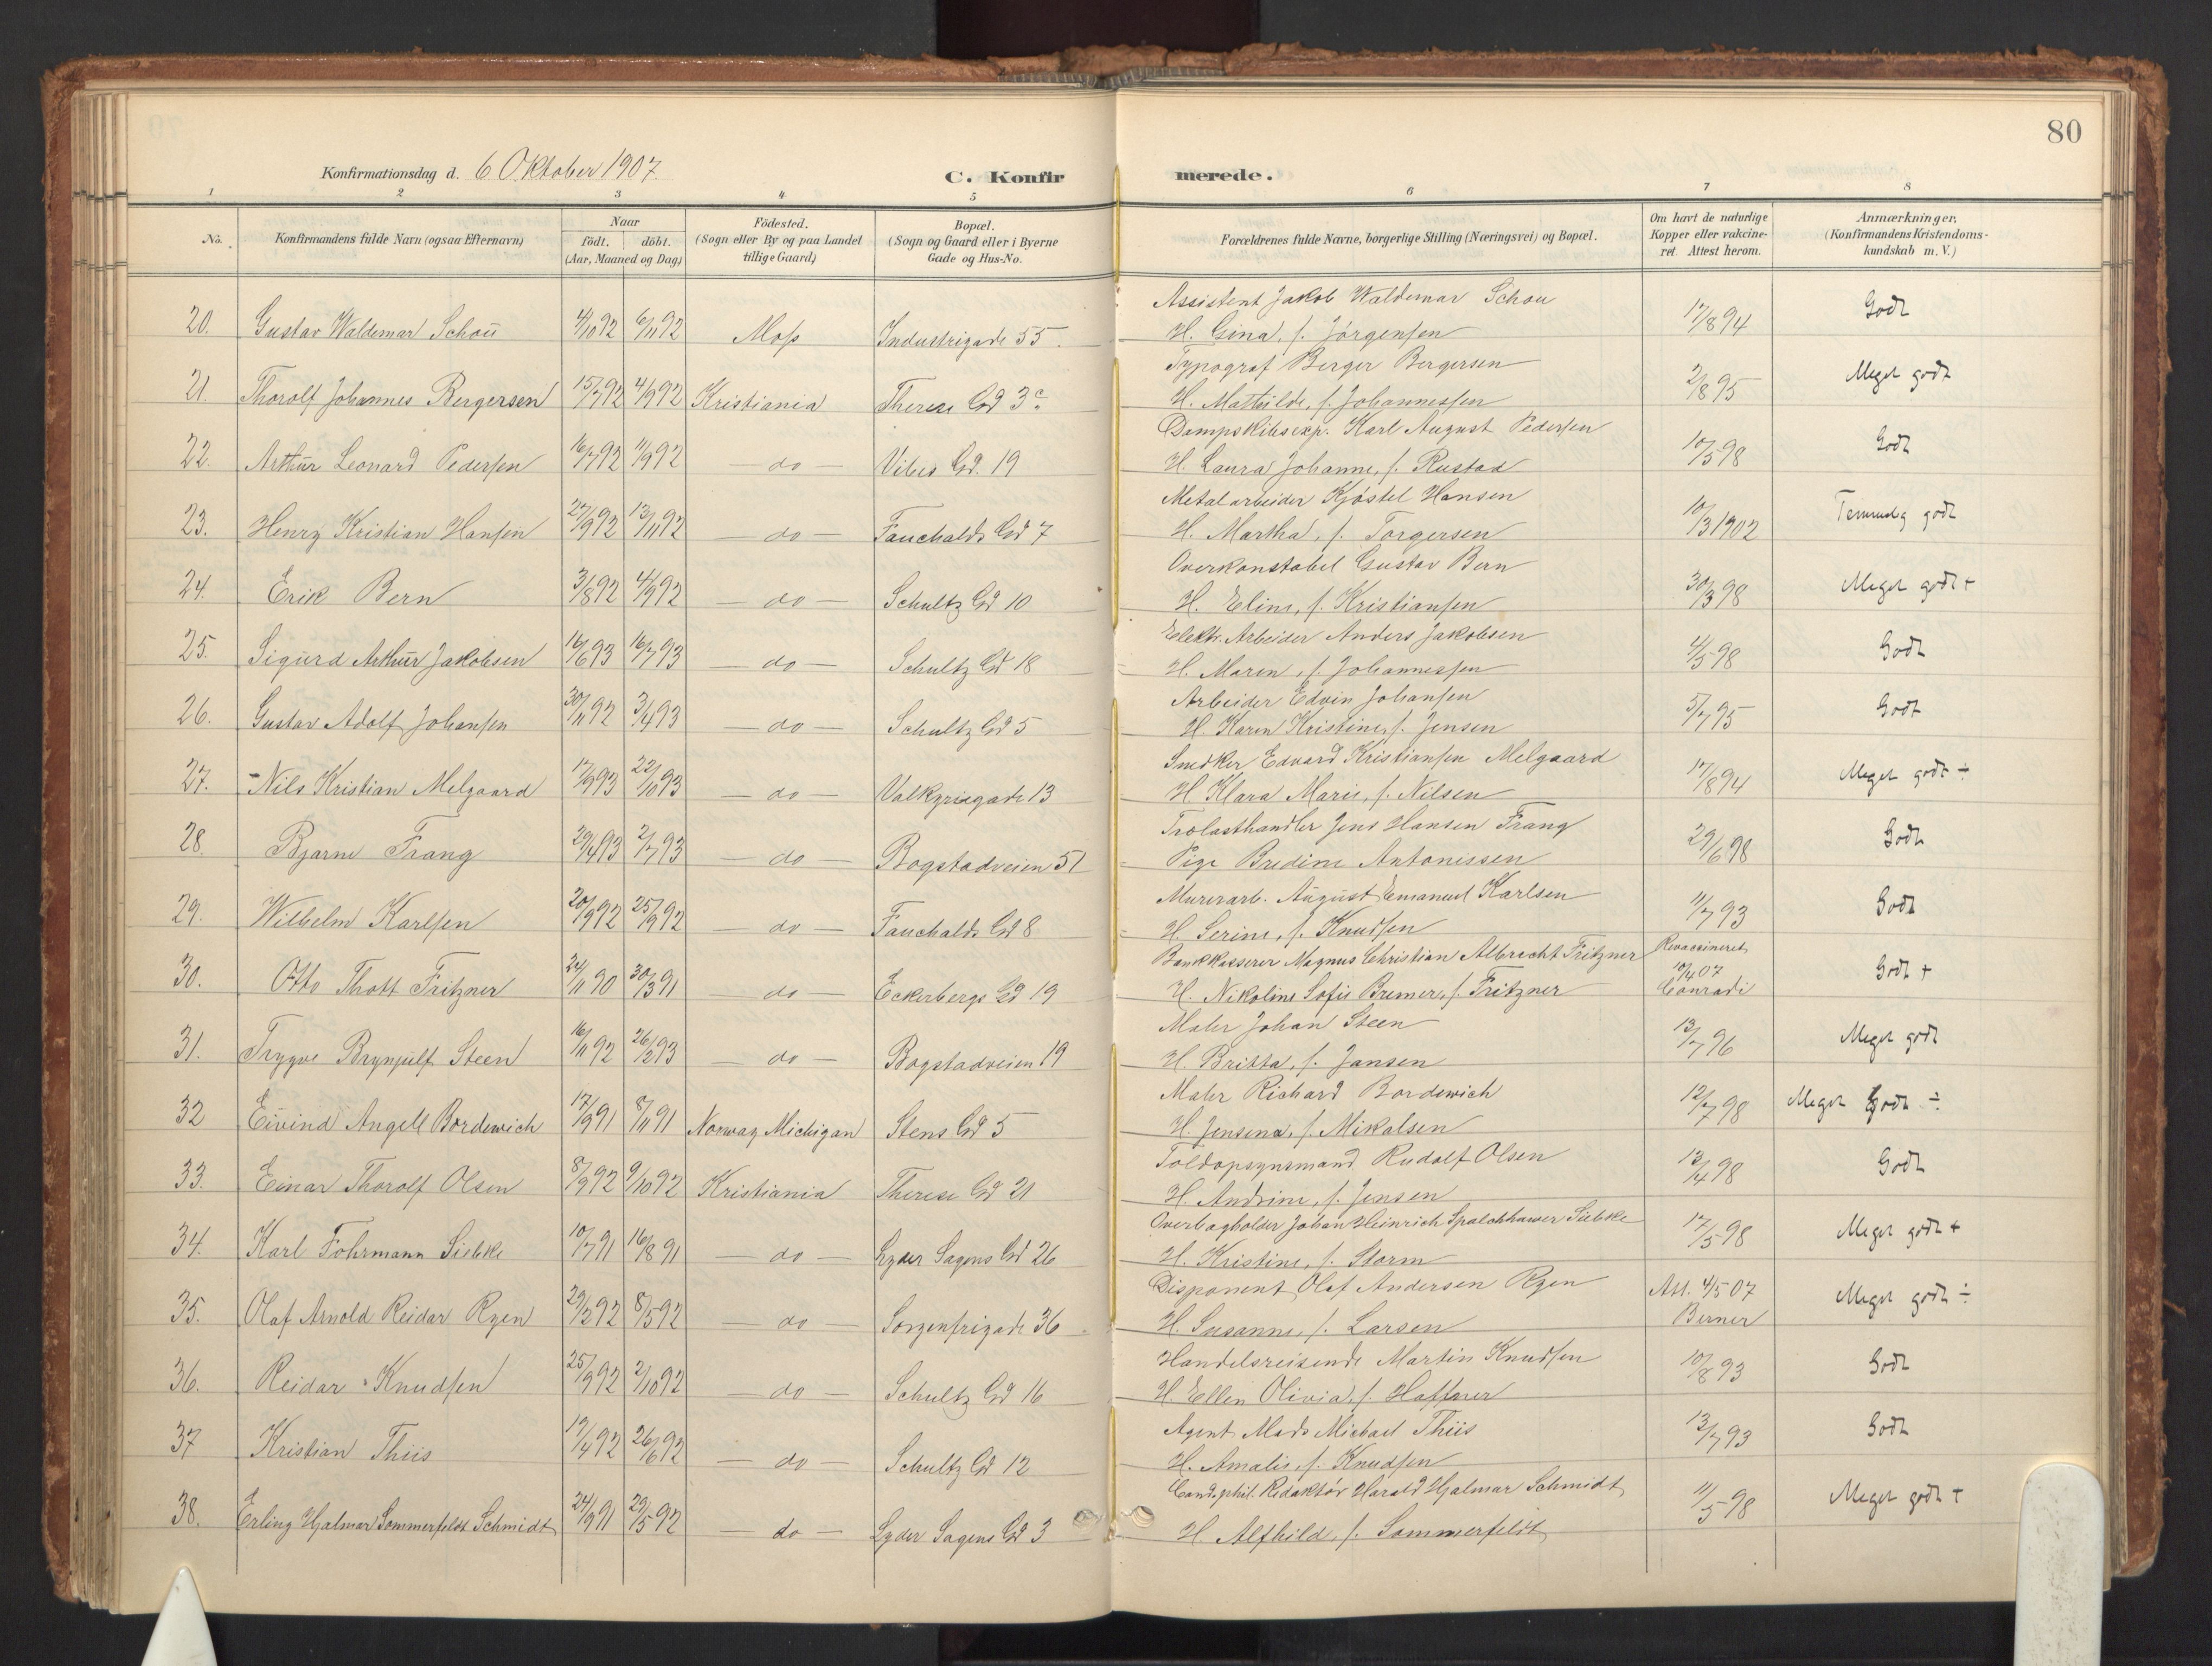 80
Konfirmationsdag d. 6 Oktober 1907.
C. Konfirmerede.
1 2 3 4 5 6 7 8
No. Konfirmandens fulde Navn (ogsaa Efternavn) Naar födt. döbt. (Aar, Maaned og Dag) Födested. (Sogn eller By og paa Landet tillige Gaard) Bopæl. (Sogn og Gaard eller i Byerne Gade og Hus-No. Forældrenes fulde Navne, borgerlige Stilling (Næringsvei) og Bopæl. Om havt de naturlige Kopper eller vakcineret. Attest herom. Anmærkninger. (Konfirmandens Kristendomskundskab m.V.)
Assistent Jakob Waldemar Schou
20. Gustav Waldemar Schou 4/10 92 6/11 92 Moss Industrigade 55. H. Gina, f. Jørgensen 17/8 94 Godt
Typograf Berger Bergersen
21. Thorolf Johannes Bergersen 15/7 92 4/9 92 Kristiania Therese Gd 3c. H. Mathilde, f. Johannessen 2/8 95 Meget godt
Dampskibsexp. Karl August Pedersen
22. Arthur Leonard Pedersen 16/7 92 11/9 92 - do - Vibes Gd. 19 H. Laura Johanne, f. Rustad 10/5 98 Godt
Metalarbeider Kjøstel Hansen
23. Henry Kristian Hansen 27/9 92 13/11 92 - do - Fauchalds Gd 7 H. Martha, f. Torgersen 10/3 1902 Temmelig godt
Overkonstabel Gustav Bern
24. Erik Bern 3/8 92 4/9 92 - do - Schultz Gd 10 H. Eline, f. Kristiansen 30/3 98 Meget godt +
Elektr. Arbeider Anders Jakobsen
25. Sigurd Arthur Jakobsen 16/6 93 16/7 93 - do - Schultz Gd 18 H. Maren, f. Johannessen 4/5 98 Godt
Arbeider Edvin Johansen
26. Gustav Adolf Johansen 30/11 92 3/4 93 - do - Schultz Gd 5 H. Karen Kristine, f. Jensen 5/7 95 Godt
Snedker Edvard Kristiansen Melgaard
27. Nils Kristian Melgaard 17/9 93 22/10 93 - do - Valkyriegade 13 H. Klara Marie, f. Nilsen 17/8 94 Meget godt ÷
Trælasthandler Jens Hansen Frang
28. Bjarne Frang 29/4 93 2/7 93 - do - Bogstadveien 51 Pige Bredine Antonissen 29/6 98 Godt
Murerarb. August Emanuel Karlsen
29. Wilhelm Karlsen 20/9 92 25/9 92 - do - Fauchalds Gd 8 H. Serine, f. Knudsen 11/7 93 Godt
Bankkasserer Magnus Christian Albrecht Fritzner Revaccineret
30. Otto Thott Fritzner 24/11 90 30/3 91 - do - Eckerbergs Gd 19 H. Nikoline Sofie Bremer, f. Fritzner 10/4 07 Conradi Godt +
Maler Johan Steen
31. Trygve Brynjulf Steen 16/11 92 26/2 93 - do - Bogstadveien 19 H. Britta, f. Jansen 13/7 96 Meget godt
Maler Richard Bordewich
32 Eivind Angell Bordewich 17/9 91 8/11 91 Norway Michigan Stens Gd 5 H. Jensena, f. Mikalsen 12/7 98 Meget Godt ÷
Toldopsynsmand Rudolf Olsen
33. Einar Thorolf Olsen 8/9 92 9/10 92 Kristiania Therese Gd 21 H. Andrine, f. Jensen 12/4 98 Godt
Overbagholder Johan Heinrich Spalchhawer Siebke
34. Karl Fohrmann Siebke 10/7 91 16/8 91 - do - Lyder Sagens Gd 26 H. Kristine, f. Storm 17/5 98 Meget godt +
Disponent Olaf Andersen Ryen
35. Olaf Arnold Reidar Ryen 29/2 92 8/5 92 - do - Sorgenfrigade 36 H. Susanne, f. Larsen Att. 4/5 07 Berner Meget godt ÷
Handelsreisende Martin Knudsen
36. Reidar Knudsen 25/9 92 2/10 92 - do - Schultz Gd 16 H. Ellen Olivia, f. Haffner 10/8 93 Godt
Agent Mads Michael Thiis
37 Kristian Thiis 19/4 92 26/6 92 - do - Schultz Gd 12 H. Amalie, f. Knudsen 13/7 93 Godt
Cand. phil. Redaktør Harald Hjalmar Schmidt
38. Erling Hjalmar Sommerfeldt Schmidt 24/9 91 29/5 92 - do - Lyder Sagens Gd 3 H. Alfhild, f. Sommerfeldt 11/5 98 Meget godt +